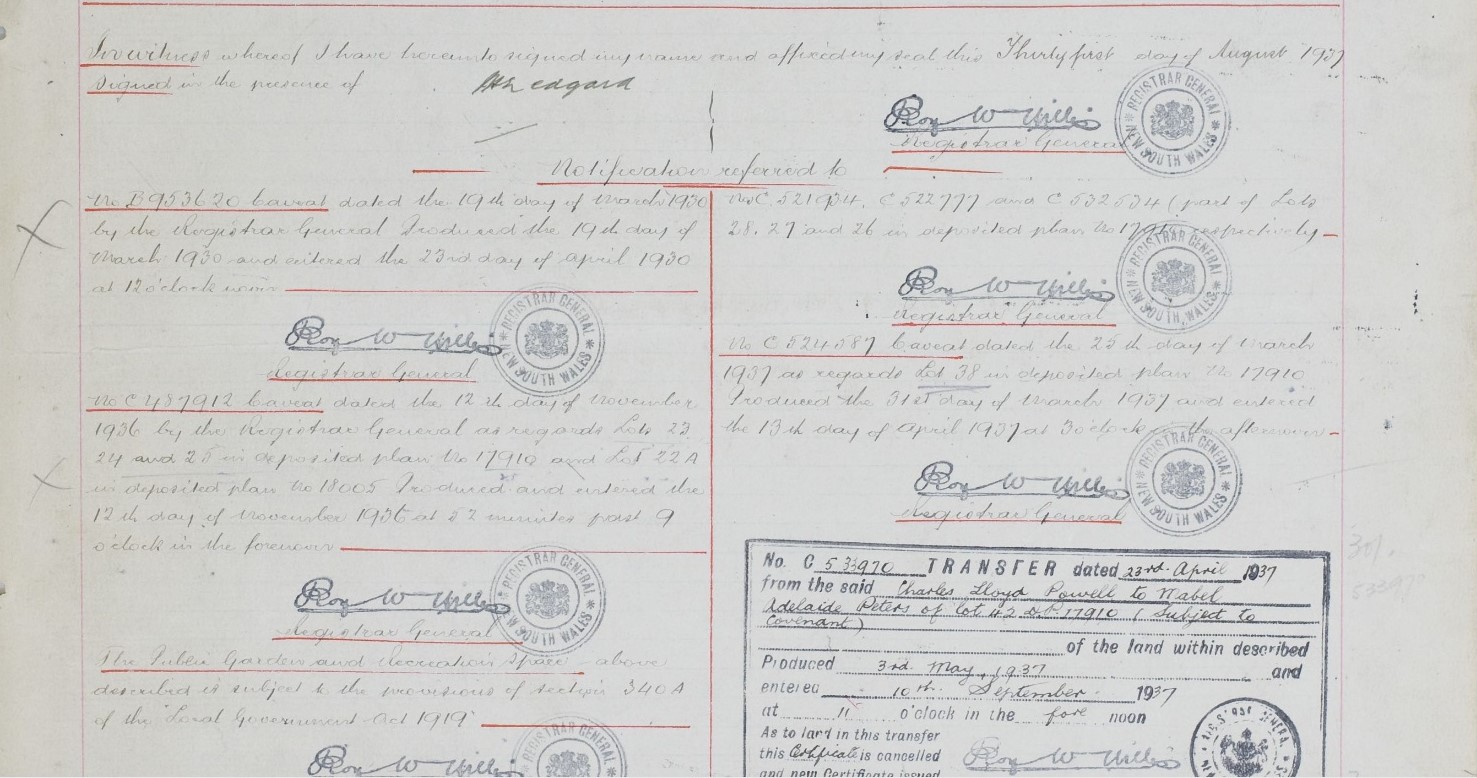 In witness whereof I have hereunto signed my name and affixed my seal this Thirtyfirst day of August 1937
Signed in the presence of
Roy W Willis
Registrar General
REGISTRAR GENERAL * NEW SOUTH WALES *
Notification referred to
No. B953620 Caveat dated the 19th day of March 1930
by the Registrar General Produced the 19th day of
March 1930 and entered the 23rd day of April 1930
at 12 o'clock noon
Roy W Willis
Registrar General
REGISTRAR GENERAL * NEW SOUTH WALES *
No C487912 Caveat dated the 12th day of November
1936 by the Registrar General as regards Lots 23
24 and 25 in deposited plan No 17910 and Lot 22A
in deposited plan No 18005 Produced and entered the
12th day of November 1936 at 52 minutes past 9
o'clock in the forenoon
Roy W Willis
Registrar General
REGISTRAR GENERAL * NEW SOUTH WALES *
The Public Garden and Recreation Space above
described is subject to the provisions of section 340A
of the Local Government Act 1919
Roy W Willis
REGISTRAR GENERAL
C 522777 and C 532534 (part of Lots
28, 27 and 26 in deposited plan No 17910 respectively
Roy W Willis
Registrar General
REGISTRAR GENERAL * NEW SOUTH WALES *
No C 524587 Caveat dated the 25th day of March
1937 as regards Lot 38 in deposited plan No 17910
Produced the 31st day of March 1937 and entered
the 13th day of April 1937 at 3 o'clock in the afternoon
Roy W Willis
Registrar General
REGISTRAR GENERAL * NEW SOUTH WALES *
No. C 533970 TRANSFER dated 23rd April 1937
from the said Charles Lloyd Powell to Mabel
Adelaide Peters of lot 42 D.P. 17910 (Subject to
Covenant)
of the land within described
Produced 3rd May 1937 and
entered 10th September 1937
at 11 o'clock in the fore noon
As to land in this transfer
this Certificate is cancelled
and new Certificate issued
Roy W Willis
533970